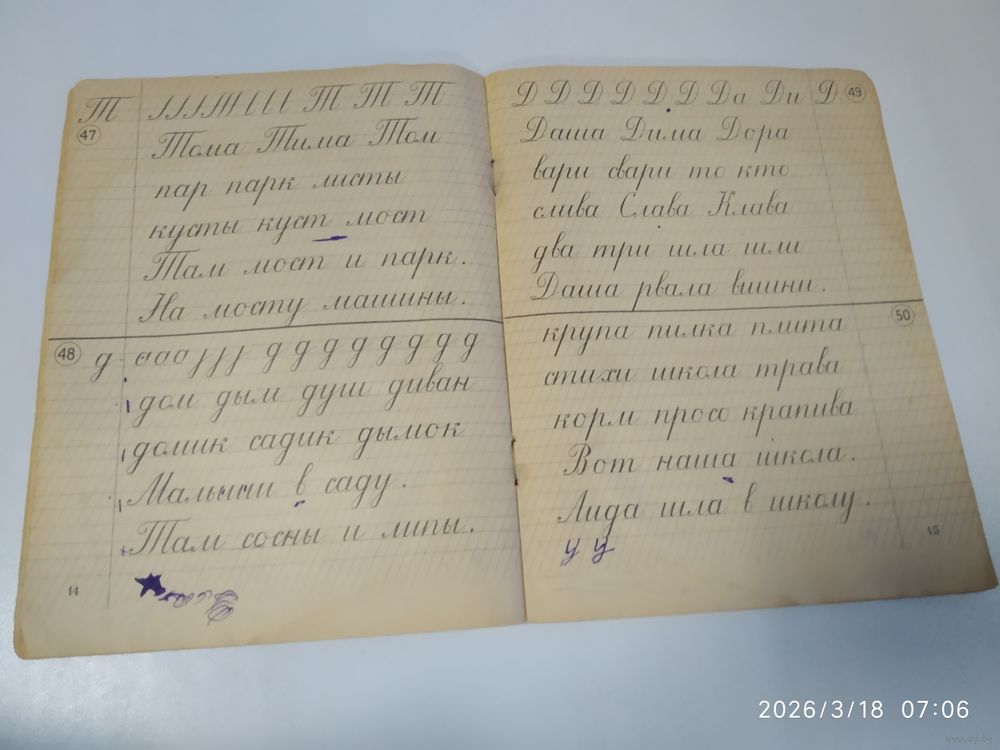 Т Т Т Т Т
47
Тома Тима Том
пар парк листы
кусты куст мост
Там мост и парк.
На мосту машины.
48
д д д д д д д д д
дом дым душ диван
домик садик дымок
Малыши в саду.
Там сосны и липы.
14
Д Д Д Д Д Д Да Ди Д 49
Даша Дима Дора
вари свари то кто
слива Слава Клава
два три шла шли
Даша рвала вишни.
50
крупа пилка плита
стихи школа трава
корм просо крапива
Вот наша школа.
Лида шла в школу.
у у
15
2026/3/18 07:06
www.ay.by